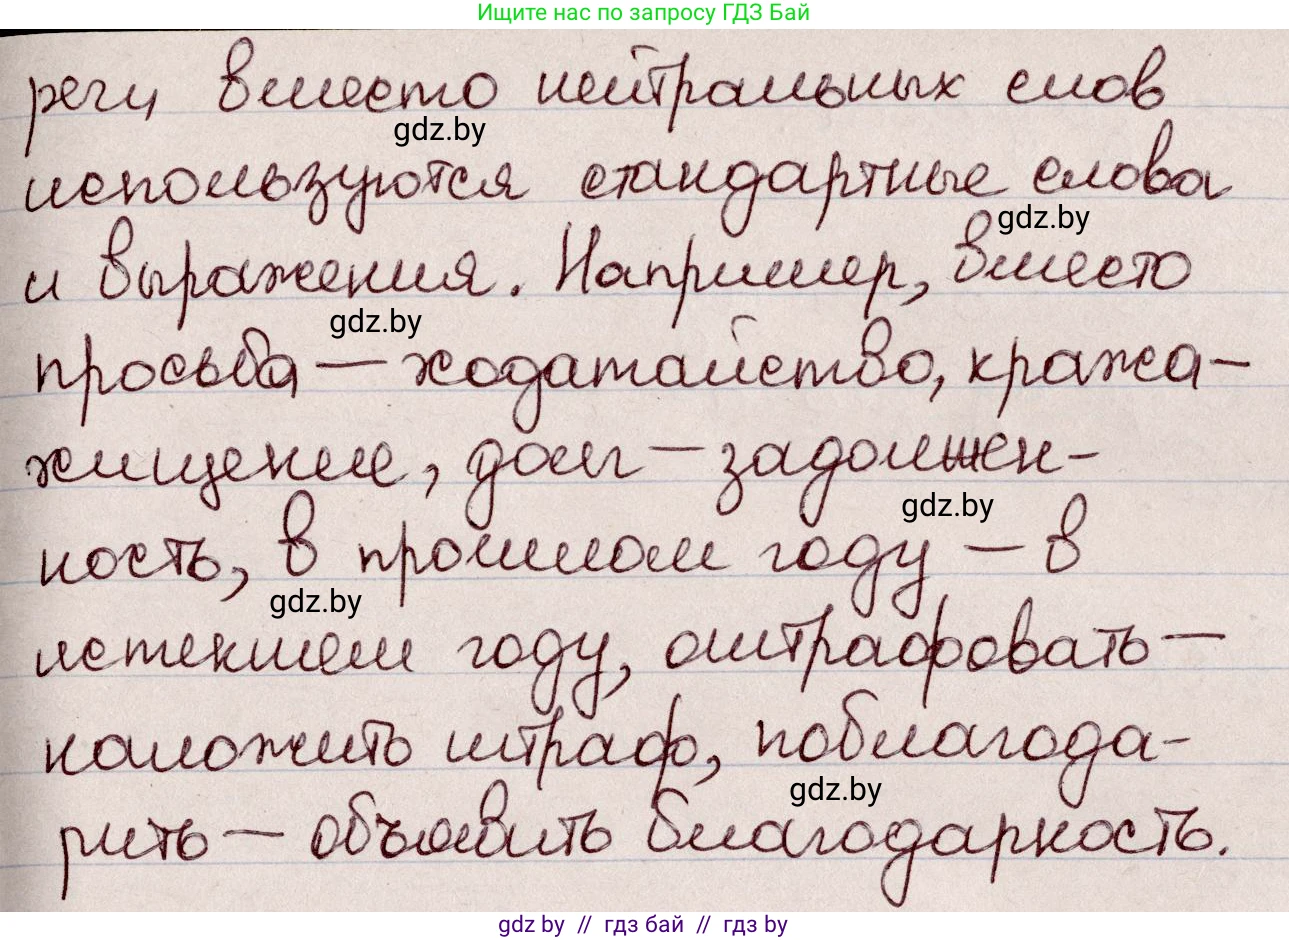 Ищите нас по запросу ГДЗ Бай
речи вместо нейтральных слов
gdz.by
используются стандартные слова
gdz.by
и выражения. Например, вместо
gdz.by
просьба — ходатайство, кража —
хищение, долг — задолжен-
gdz.by
ность, в прошлом году — в
gdz.by
истекшем году, оштрафовать —
наложить штраф, поблагода-
gdz.by
рить — объявить благодарность.
gdz.by // гдз бай // гдз by